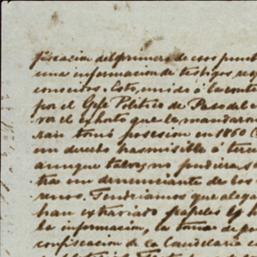 fiscacion del primero de esos punt
una informacion de testigos, res
conocidos. Esto, unido á la conte
por el Gefe Politico de Paso del
en el exhoto que le mandaron
tomó posesion en 1860 (
un derecho trasmisible á terce
aunque talvez no pudiera s
tra un denunciante de los
renos. Tendriamos que alega
han extraviado papeles
la informacion, la toma de po
confiscacion de la Candelaria